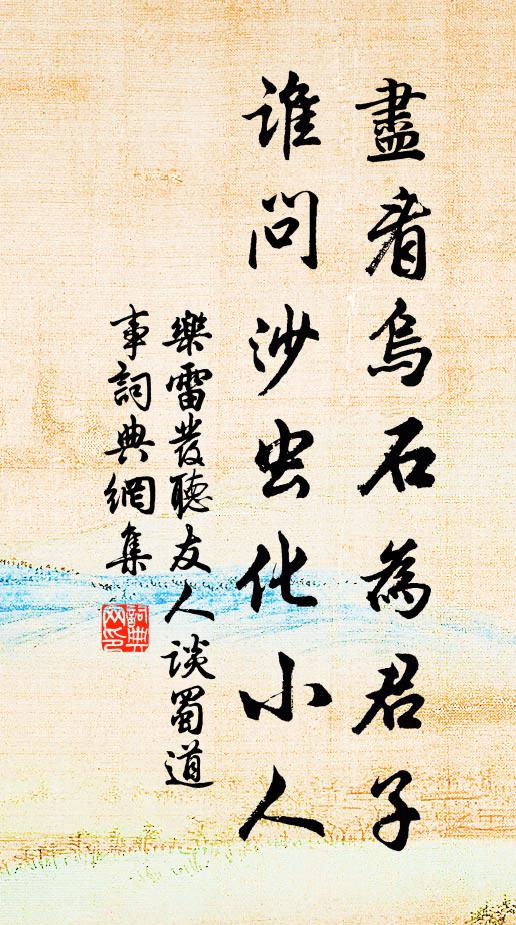 盡看烏石為君子
誰問沙虫化小人
樂雷發聽友人談蜀道
事詞典網集
詞典網印